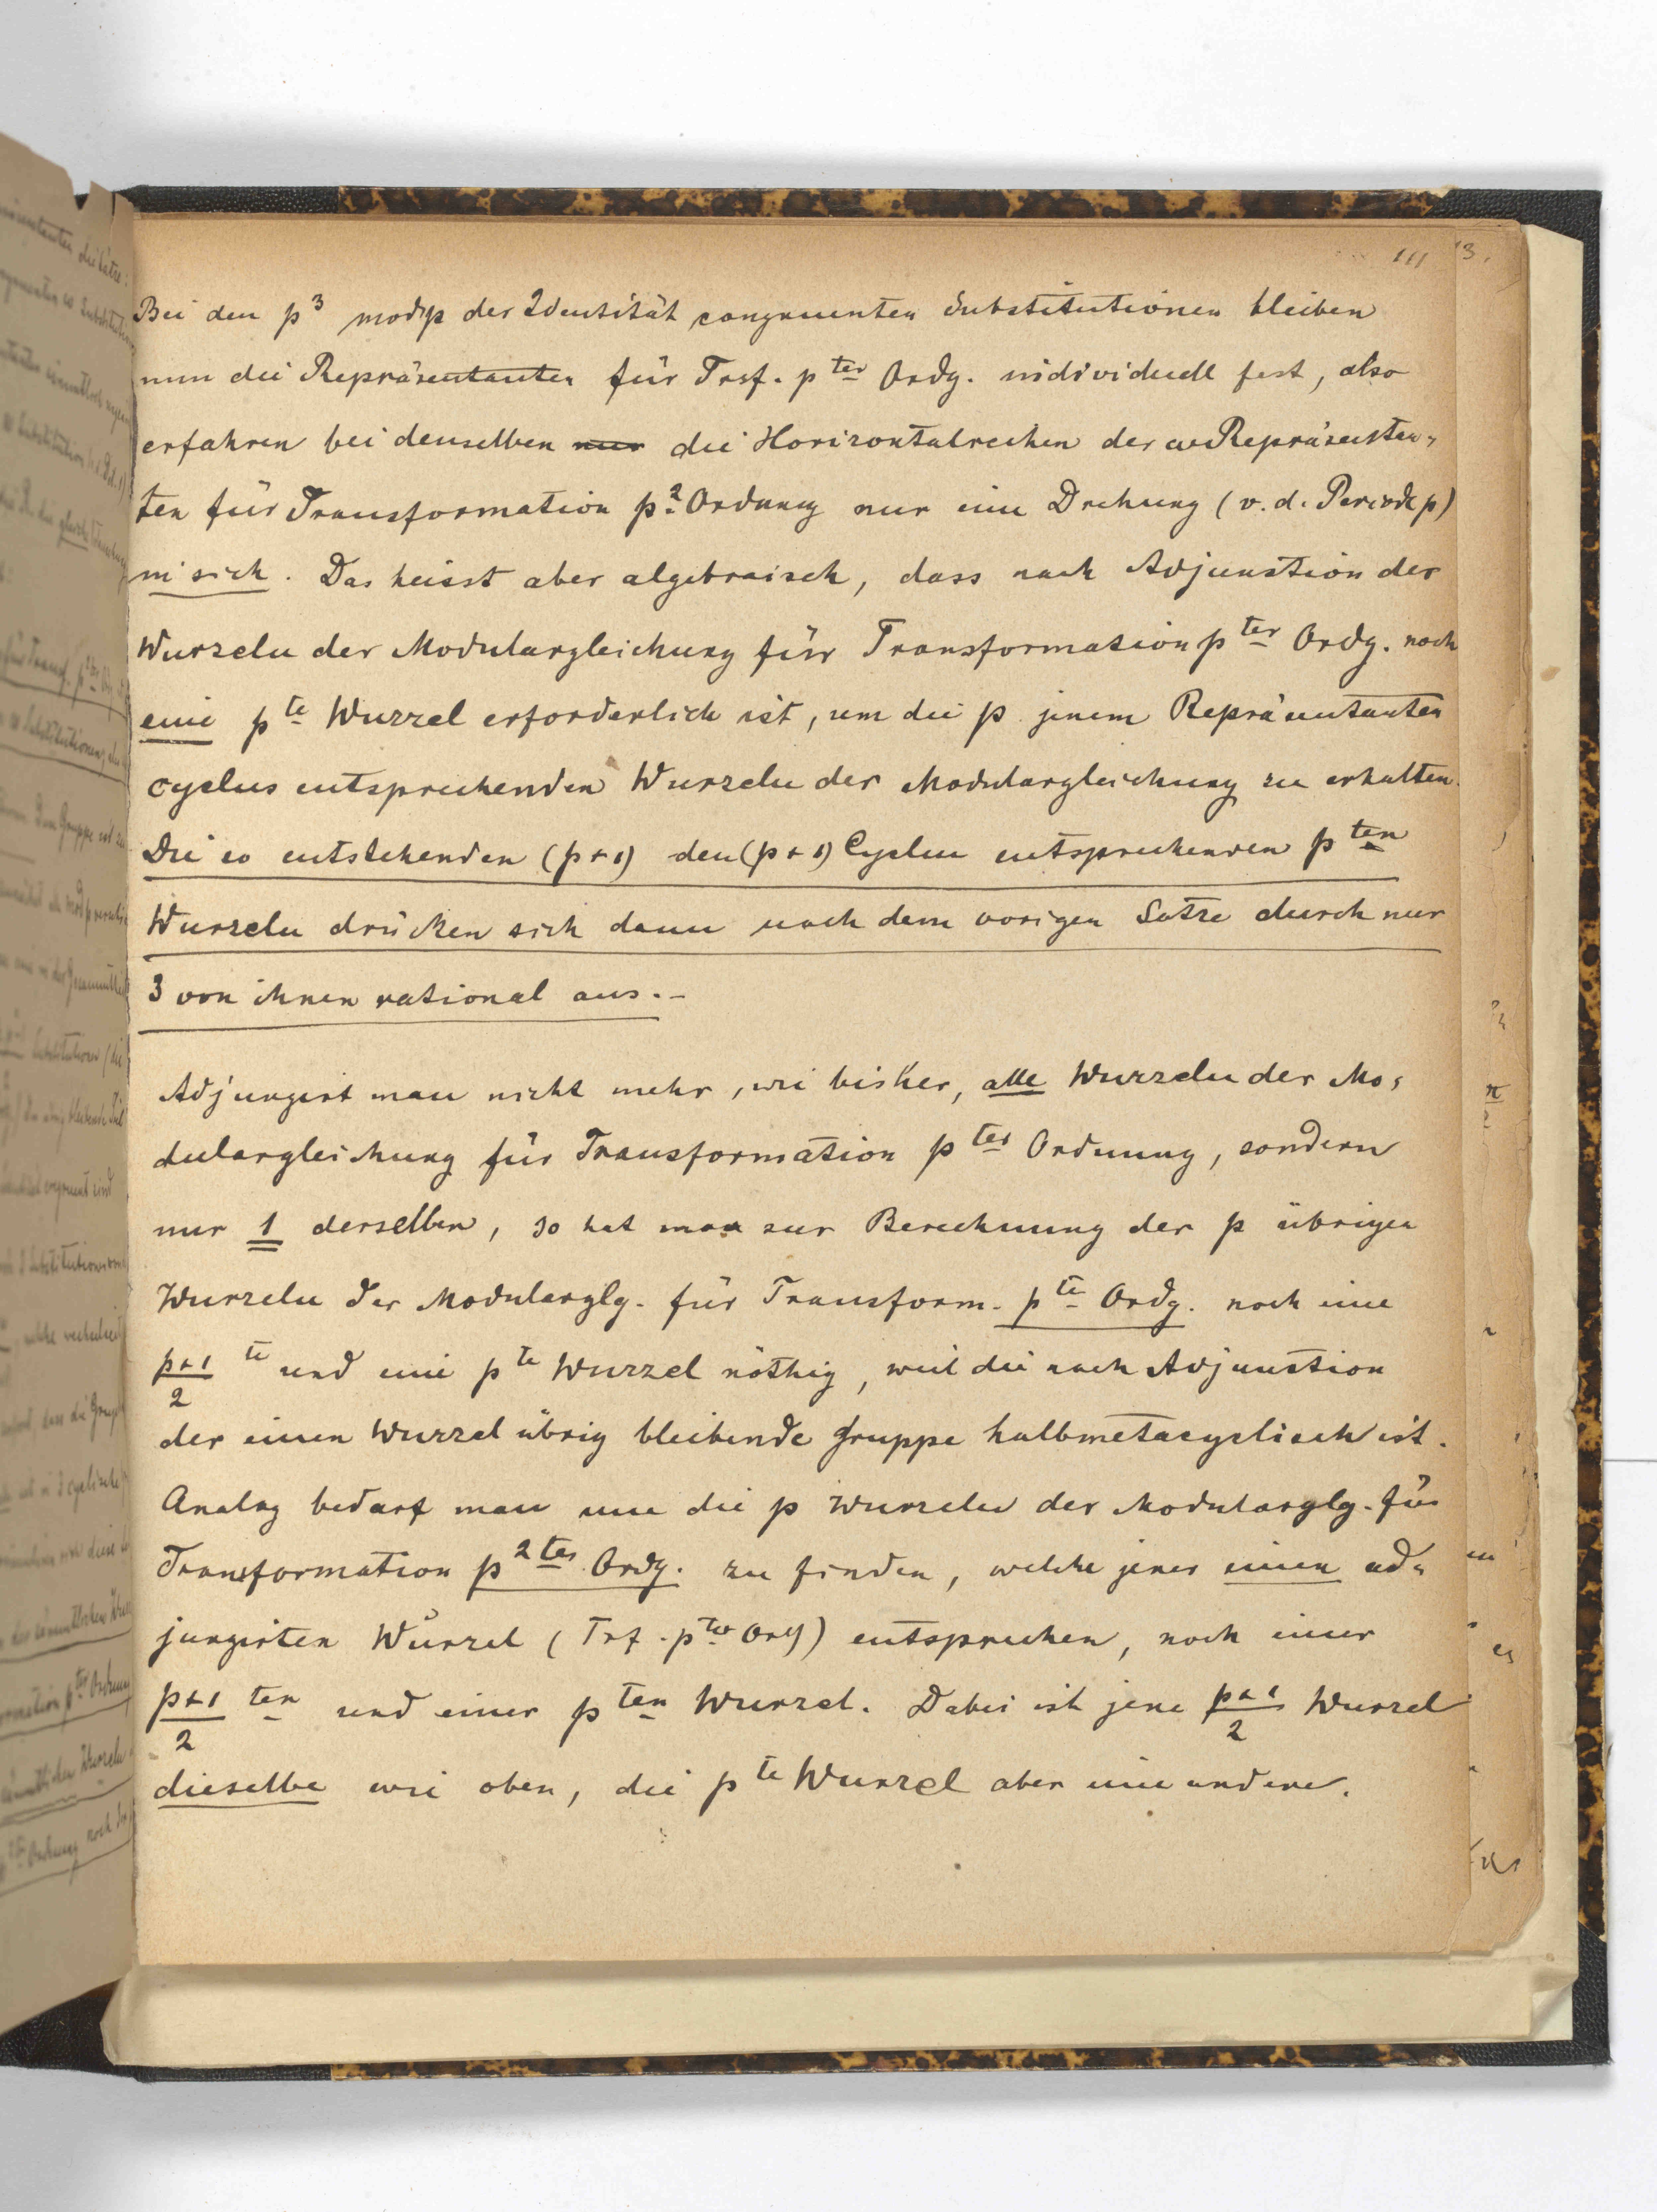 111
Bei den p³ mod p der Identität congruenten Substitutionen bleiben
nun die Repräsentanten für Trsf. pter Ordg. individuell fest, also
erfahren bei denselben nur die Horizontalreihen der Repräsentan-
ten für Transformation p² Ordnung nur eine Drehung (v. d. Periode p)
in sich. Das heisst aber algebraisch, dass nach Adjunction der
Wurzeln der Modulargleichung für Transformation pter Ordg. noch
eine pte Wurzel erforderlich ist, um die p jenem Repräsentanten
cyclus entsprechenden Wurzeln der Modulargleichung zu erhalten.
Die so entstehenden (p+1) den (p+1) Cyclen entsprechenden pten
Wurzeln drücken sich dann nach dem vorigen Satze durch nur
3 von ihnen rational aus. –
Adjungirt man nicht mehr, wie bisher, alle Wurzeln der Mo-
dulargleichung für Transformation pter Ordnung, sondern
nur 1 derselben, so hat man zur Berechnung der p übrigen
Wurzeln der Modularglg. für Transform. pte Ordg. noch eine
p+1/2 te und eine pte Wurzel nöthig, weil die nach Adjunction
der einen Wurzel übrig bleibende Gruppe halbmetacyclisch ist.
Analog bedarf man um die p Wurzeln der Modularglg. für
Transformation p²ter Ordg. zu finden, welche jener einen ad-
jungirten Wurzel (Trf. pter Ordg) entsprechen, noch einer
p+1/2 ten und einer pten Wurzel. Dabei ist jene p+1/2 Wurzel
dieselbe wie oben, die pte Wurzel aber eine andere.